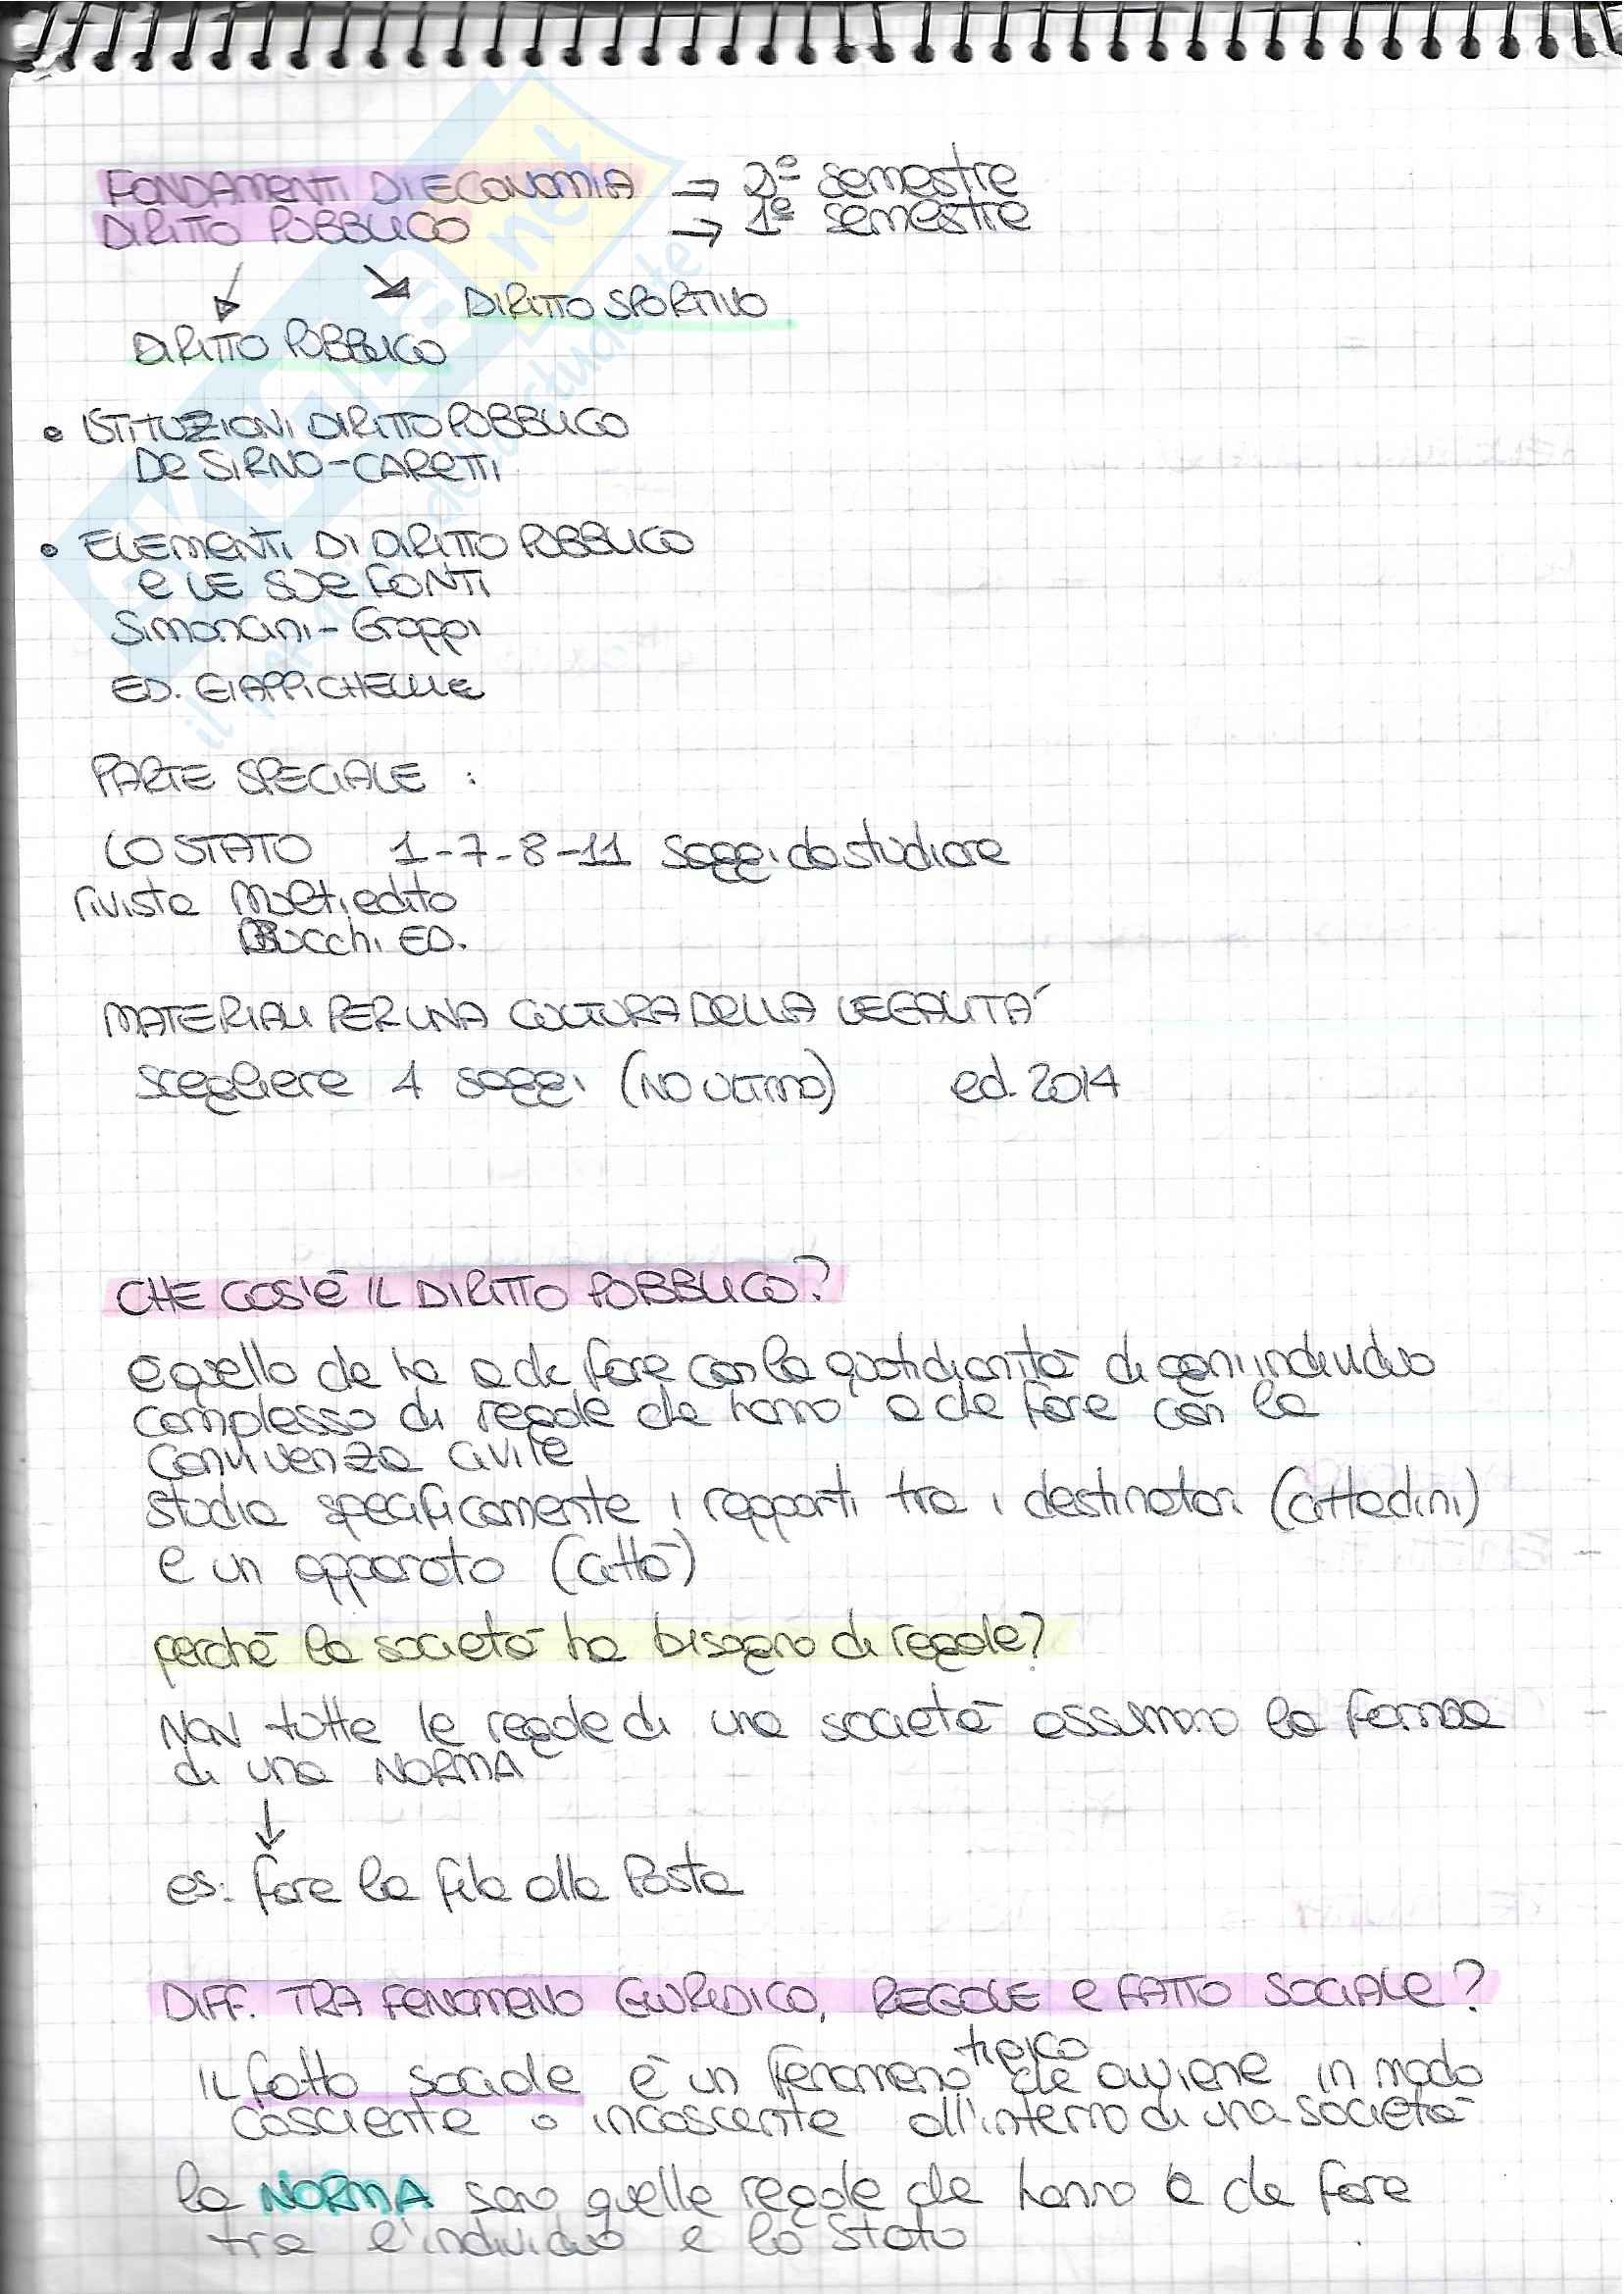 FONDAMENTI DI ECONOMIA → 2º semestre
DIRITTO PUBBLICO → 1º semestre
DIRITTO SPORTIVO
DIRITTO PUBBLICO
• ISTITUZIONI DIRITTO PUBBLICO
De SIRNO-CARETTI
• ELEMENTI DI DIRITTO PUBBLICO
e LE SUE FONTI
Simoncini - Groppi
ED. GIAPPICHELLIE
PARTE SPECIALE :
LO STATO 1-7-8-11 saggi da studiare
rivista edito
Bucchi ED.
MATERIALI PER UNA CULTURA DELLA LEGALITÀ
scegliere 4 saggi (NO ULTIMO) ed. 2014
CHE COS'È IL DIRITTO PUBBLICO?
è quello che ha a che fare con la quotidianità di ogni individuo
complesso di regole che hanno a che fare con la
convivenza civile
studia specificamente i rapporti tra i destinatari (cittadini)
e un apparato (città)
perché la società ha bisogno di regole?
NON tutte le regole di una società assumono la forma
di una NORMA
↓
es: fare la fila alla Posta
DIFF. TRA FENOMENO GIURIDICO, REGOLE e FATTO SOCIALE?
IL fatto sociale è un fenomeno tipico che avviene in modo
cosciente o incoscente all'interno di una società
la NORMA sono quelle regole che hanno a che fare
tra l'individuo e lo Stato